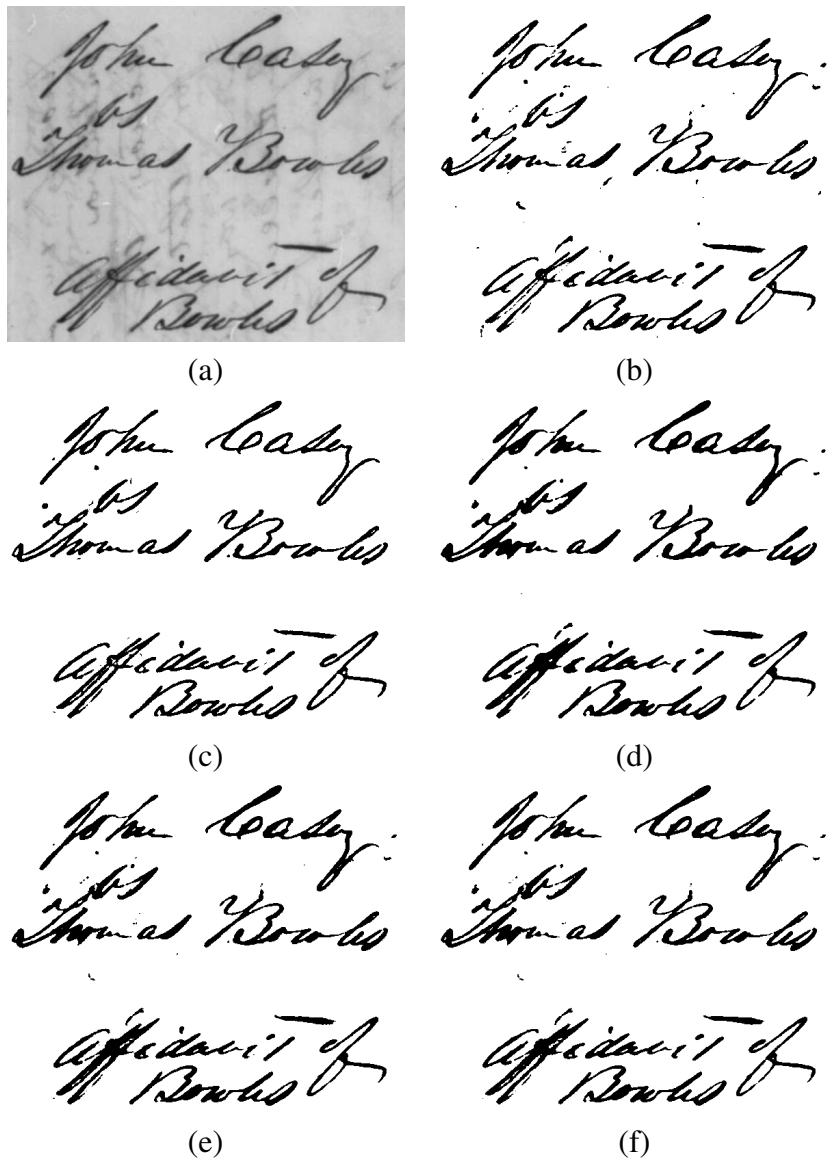 John Casey
vs
Thomas Bowles
Affidavit of
Bowles
(a)
John Casey
vs
Thomas Bowles
Affidavit of
Bowles
(b)
John Casey
vs
Thomas Bowles
Affidavit of
Bowles
(c)
John Casey
vs
Thomas Bowles
Affidavit of
Bowles
(d)
John Casey
vs
Thomas Bowles
Affidavit of
Bowles
(e)
John Casey
vs
Thomas Bowles
Affidavit of
Bowles
(f)